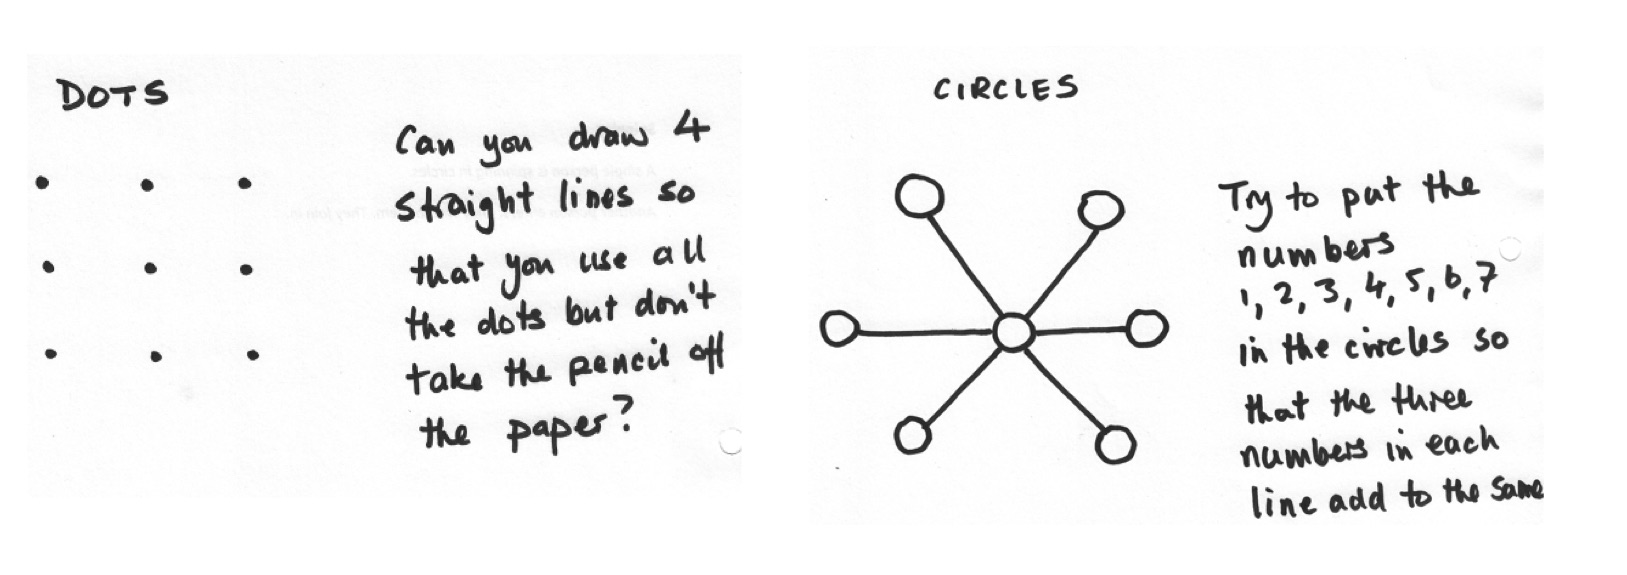 DOTS
Can you draw 4
straight lines so
that you use all
the dots but don't
take the pencil off
the paper?
CIRCLES
Try to put the
numbers
1, 2, 3, 4, 5, 6, 7
in the circles so
that the three
numbers in each
line add to the same